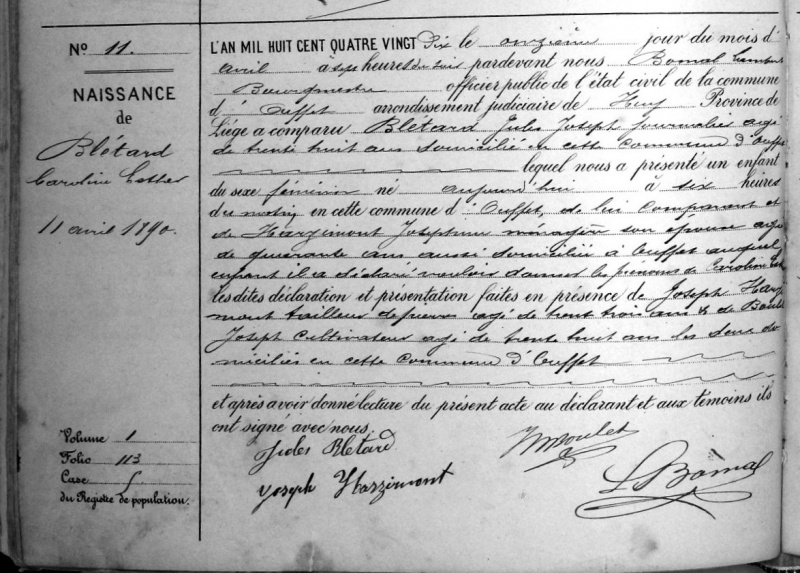 N° 11.
NAISSANCE
de
Blétard
Caroline Esther
11 avril 1890.
Volume 1
Folio 113
Case
du Registre de population.
L'AN MIL HUIT CENT QUATRE VINGT Dix le onzième jour du mois d'
avril à six heures du soir pardevant nous Bomal Lambert
Bourgmestre officier public de l'état civil de la commune
d' Ouffet arrondissement judiciaire de Huy Province de
Liége a comparu Blétard Jules Joseph journalier agé
de trente huit ans domicilié en cette Commune d'Ouffet
lequel nous a présenté un enfant
du sexe féminin né aujourd'hui à six heures
du matin en cette commune d' Ouffet, de lui comparant et
de Harzimont Joséphine ménagère son épouse agée
de quarante ans aussi domiciliée à Ouffet auquel
enfant il a déclaré vouloir donner les prénoms de Caroline Esther
Les dites déclaration et présentation faites en présence de Joseph Harzi
mont tailleur de pierres agé de trent trois ans & de Boulet
Joseph cultivateur agé de trente huit ans les deux do
miciliés en cette Commune d'Ouffet
et après avoir donné lecture du présent acte au déclarant et aux témoins ils
ont signé avec nous.
Jules Bletard
Joseph Harzimont
Boulet
L Bomal